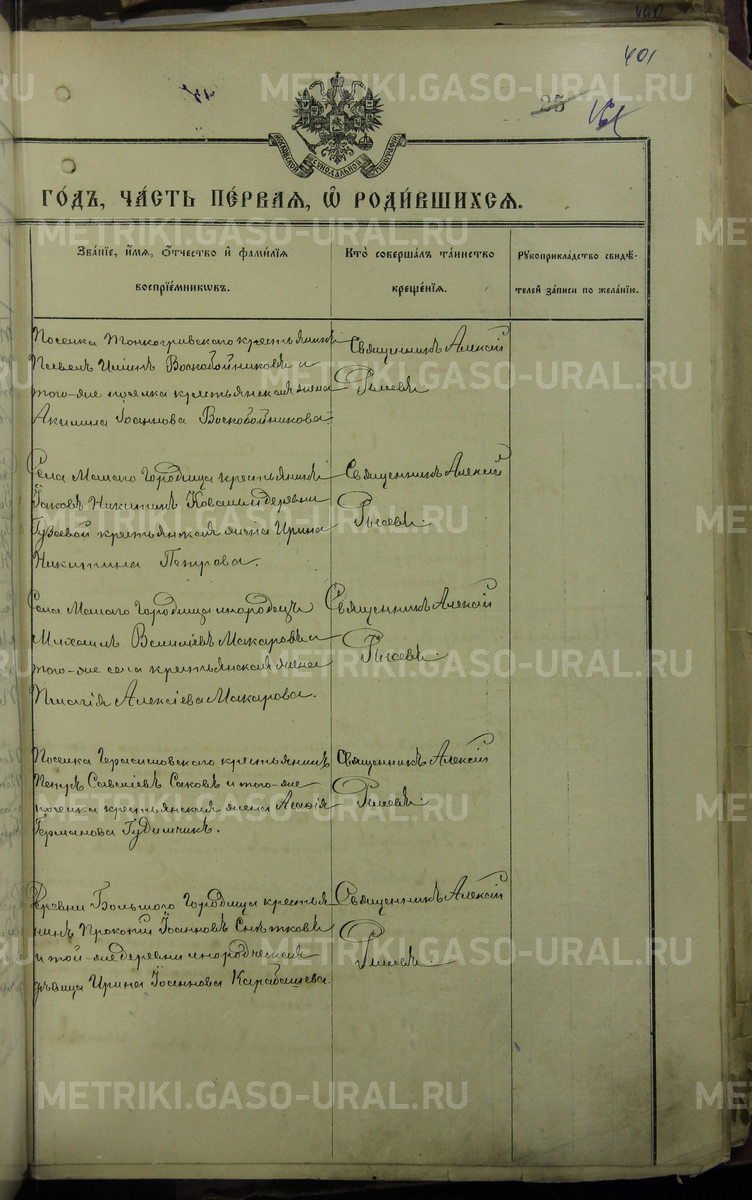 401
METRIKI.GASO-URAL.RU
25
МОСКОВСКОЙ СѴНОДАЛЬНОЙ ТѴПОГРАФІИ
ГО́ДЪ, ЧА́СТЬ ПЕ́РВАЯ, Ѽ РОДИ́ВШИХСЯ.
METRIKI.GASO-URAL.RU
Зва́нїе, и҆́мя, ѻ҆́тчество и҆ фами́лїя
воспрїе́мникѡвъ.
Кто̀ соверша́лъ та́инство
креще́нїя.
Рꙋкоприкла́дство свидѣ́-
телей за́писи по жела́нїю.
Поселка Тонкогривскаго крестьянинъ
Павелъ Воскобойниковъ и
того-же поселка крестьянская жена
Акилина Іоаннова Воскобойникова
Священникъ Алексій
METRIKI.GASO-URAL.RU
Села Малаго Городища крестьянинъ
Іаковъ Никитинъ и деревни
крестьянская жена Ирина
Никитина Петрова.
Священникъ Алексій
METRIKI.GASO-URAL.RU
Села Малаго Городища инородецъ
Михаилъ Василіевъ Макаровъ и
того-же села крестьянская жена
Пелагія Алексіева Макарова.
Священникъ Алексій
METRIKI.GASO-URAL.RU
Поселка Герасимовскаго крестьянинъ
Петръ Савеліевъ Саковъ и того-же
поселка крестьянская жена Агафія
Германова Гудимчикъ.
Священникъ Алексій
METRIKI.GASO-URAL.RU
Деревни Большого Городища крестья-
нинъ Прокопій Іоанновъ Снѣтковъ
и той-же деревни инородческая
дѣвица Ирина Іоаннова Карабашева.
Священникъ Алексій
METRIKI.GASO-URAL.RU
METRIKI.GASO-URAL.RU